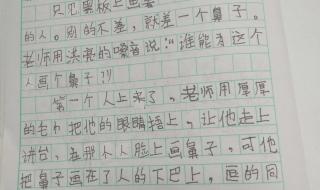 只见黑板上画着
的人。别的不差,就差一个鼻子。
老师用洪亮的嗓音说:“谁能为这个
人画个鼻子?”
第一个人上来了,老师用厚厚
的毛巾把他的眼睛捂上,让他走上
讲台,在那个人脸上画鼻子,可他
把鼻子画在了人的下巴上,画的同